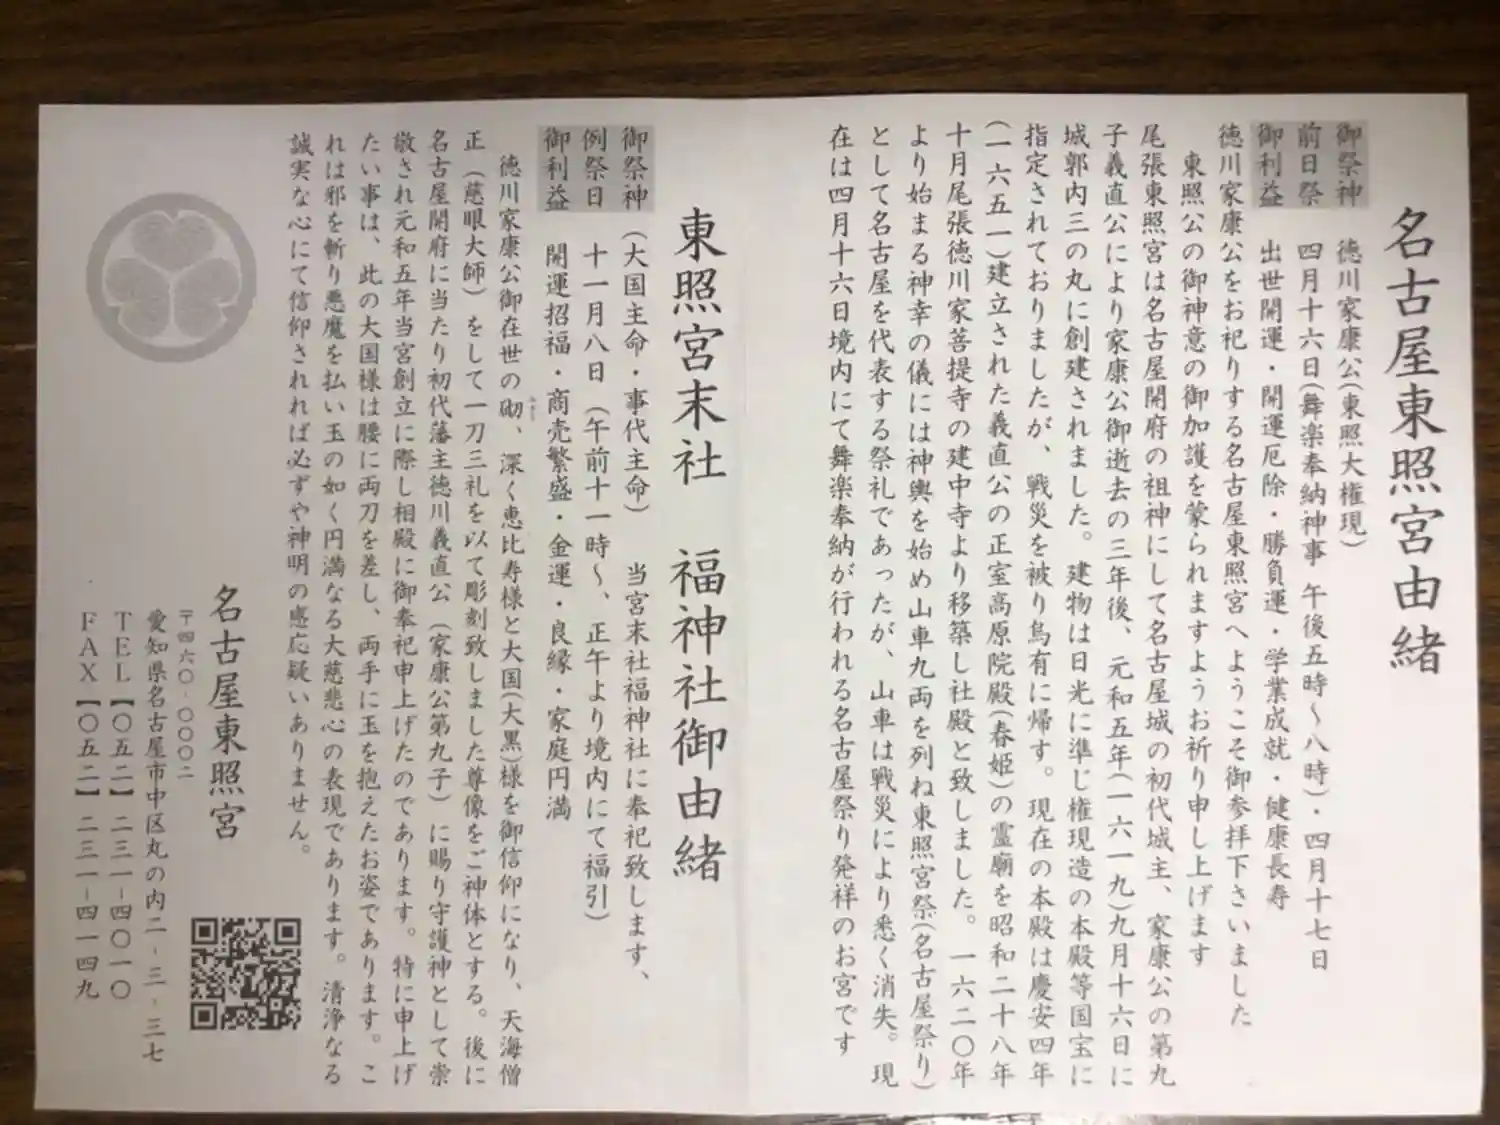 名古屋東照宮由緒
御祭神　徳川家康公(東照大権現)
前日祭　四月十六日(舞楽奉納神事 午後五時〜八時)・四月十七日
御利益　出世開運・開運厄除・勝負運・学業成就・健康長寿
徳川家康公をお祀りする名古屋東照宮へようこそ御参拝下さいました
東照公の御神意の御加護を蒙られますようお祈り申し上げます
尾張東照宮は名古屋開府の祖神にして名古屋城の初代城主、家康公の第九
子義直公により家康公御逝去の三年後、元和五年(一六一九)九月十六日に
城郭内三の丸に創建されました。建物は日光に準じ権現造の本殿等国宝に
指定されておりましたが、戦災を被り烏有に帰す。現在の本殿は慶安四年
(一六五一)建立された義直公の正室高原院殿(春姫)の霊廟を昭和二十八年
十月尾張徳川家菩提寺の建中寺より移築し社殿と致しました。一六二〇年
より始まる神幸の儀には神輿を始め山車九両を列ね東照宮祭(名古屋祭り)
として名古屋を代表する祭礼であったが、山車は戦災により悉く消失。現
在は四月十六日境内にて舞楽奉納が行われる名古屋祭り発祥のお宮です
東照宮末社　福神社御由緒
御祭神（大国主命・事代主命）　当宮末社福神社に奉祀致します、
例祭日　十一月八日（午前十一時〜、正午より境内にて福引）
御利益　開運招福・商売繁盛・金運・良縁・家庭円満
徳川家康公御在世の砌、深く恵比寿様と大国(大黒)様を御信仰になり、天海僧
正（慈眼大師）をして一刀三礼を以て彫刻致しました尊像をご神体とする。後に
名古屋開府に当たり初代藩主徳川義直公（家康公第九子）に賜り守護神として崇
敬され元和五年当宮創立に際し相殿に御奉祀申上げたのであります。特に申上げ
たい事は、此の大国様は腰に両刀を差し、両手に玉を抱えたお姿であります。こ
れは邪を斬り悪魔を払い玉の如く円満なる大慈悲心の表現であります。清浄なる
誠実な心にて信仰されれば必ずや神明の感応疑いありません。
名古屋東照宮
〒四六〇-〇〇〇二
愛知県名古屋市中区丸の内二-三-三七
ＴＥＬ【〇五二】二三一-四〇一〇
ＦＡＸ【〇五二】二三一-四一四九